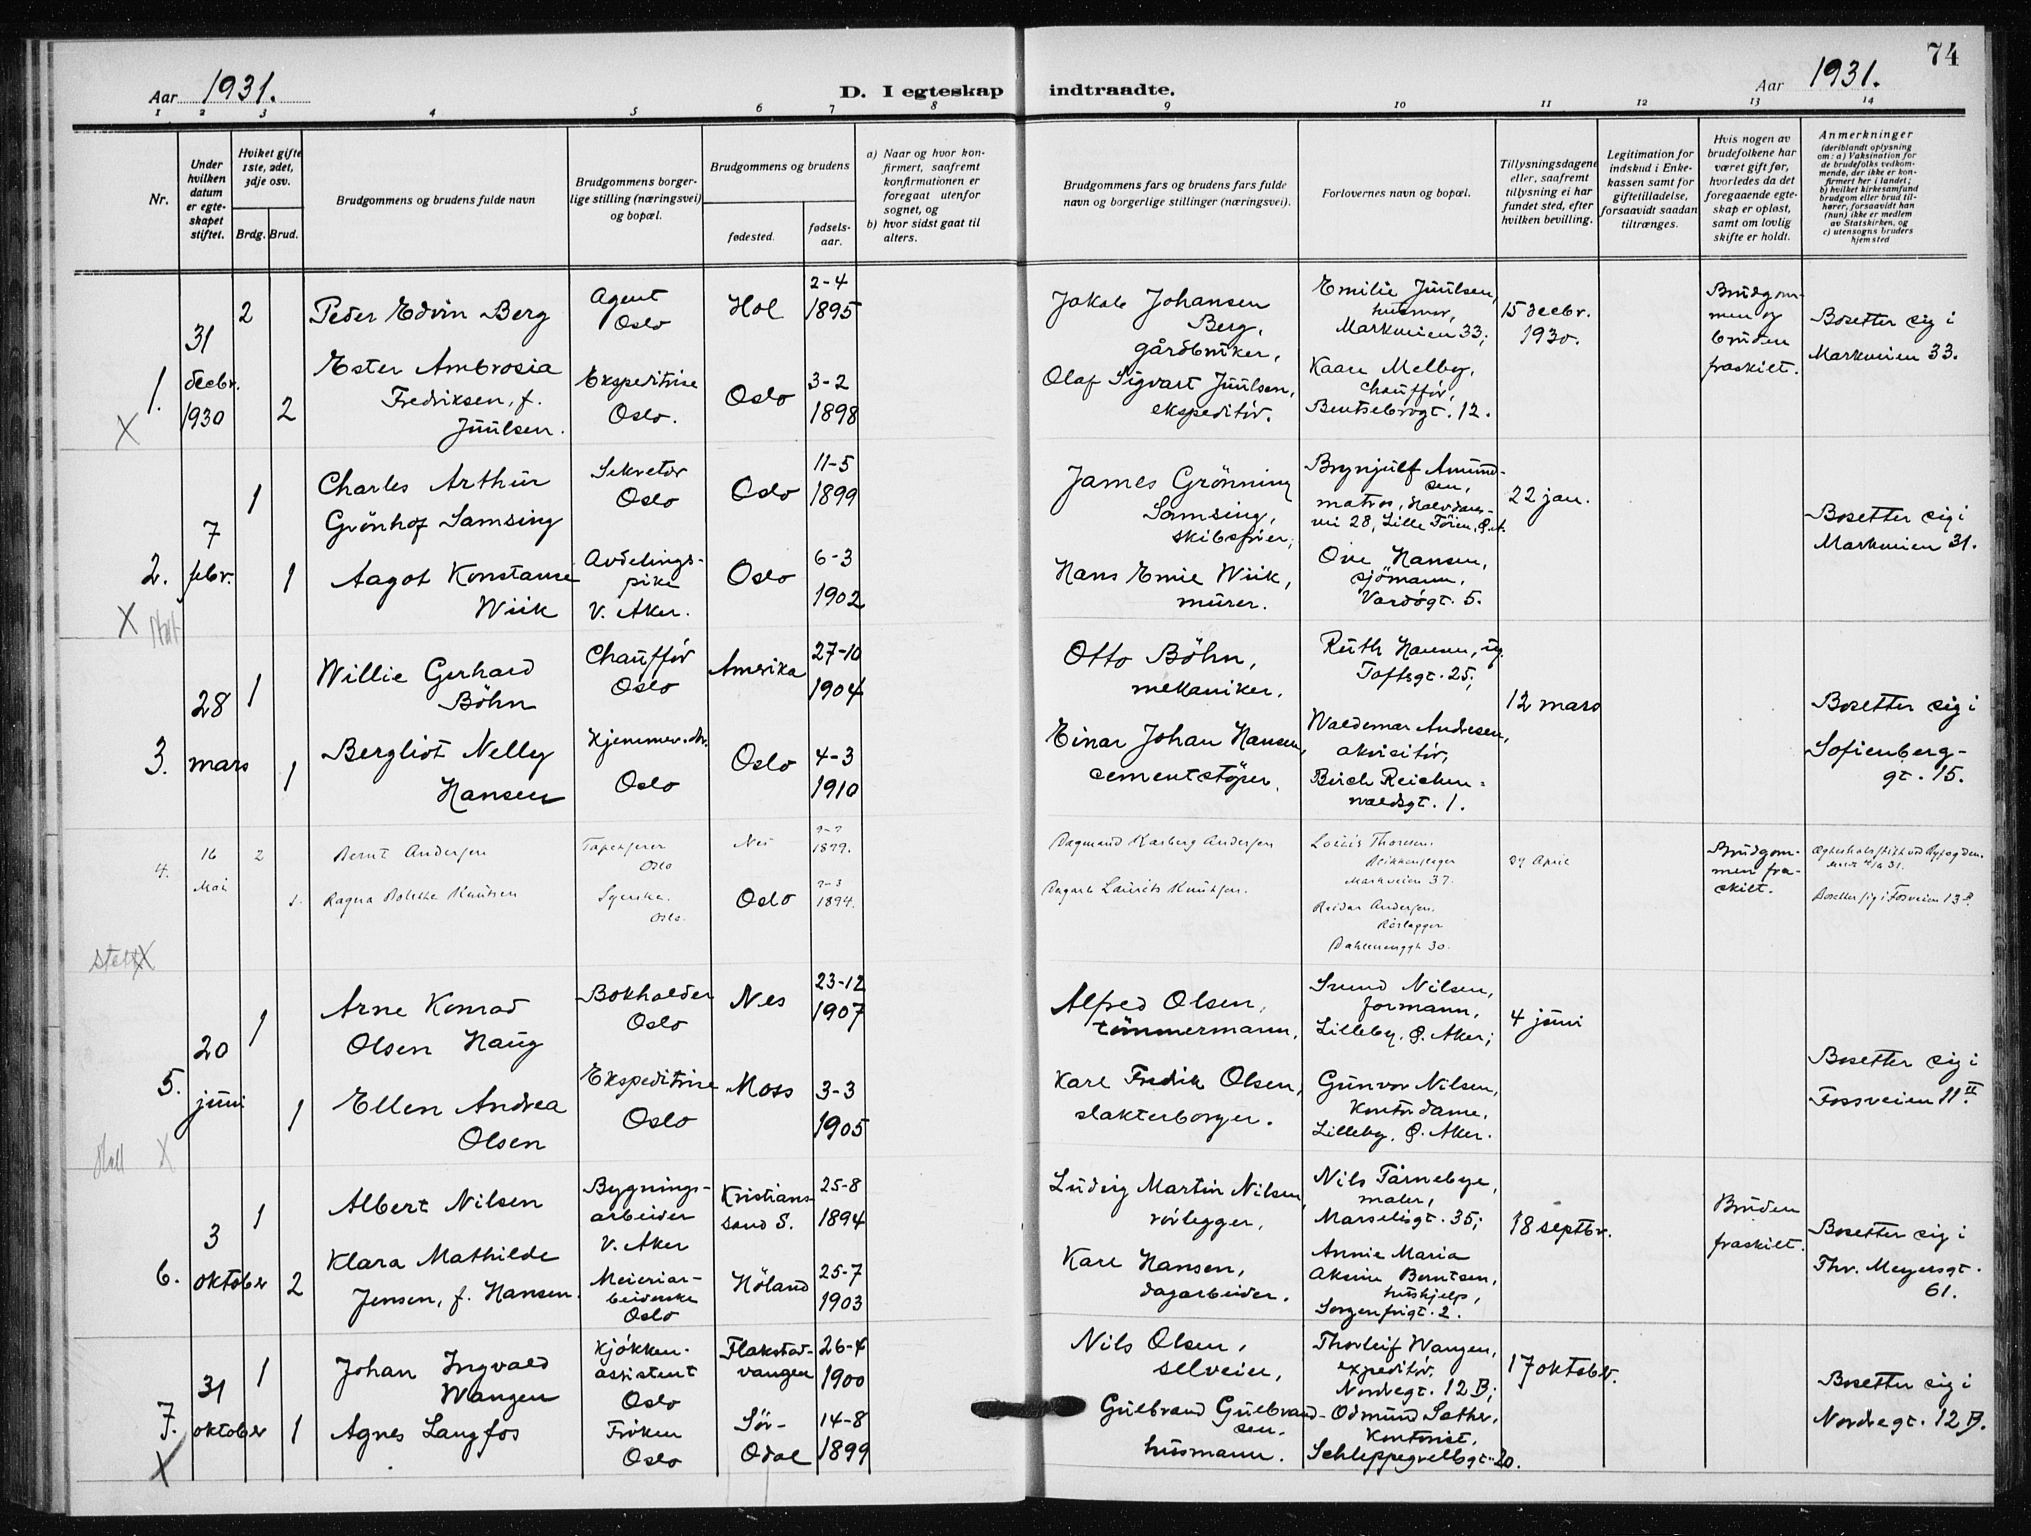 74
Aar 1931.
D. I egteskap indtraadte.
Aar 1931.
1 2 3 4 5 6 7 8 9 10 11 12 13 14
Nr.
Under
hvilken
datum
er egte-
skapet
stiftet.
Hviket gifte
1ste, 2det,
3dje osv.
Brdg. Brud.
Brudgommens og brudens fulde navn
Brudgommens borger-
lige stilling (næringsvei)
og bopæl.
Brudgommens og brudens
fødested.
fødsels-
aar.
a) Naar og hvor kon-
firmert, saafremt
konfirmationen er
foregaat utenfor
sognet, og
b) hvor sidst gaat til
alters.
Brudgommens fars og brudens fars fulde
navn og borgerlige stillinger (næringsvei).
Forlovernes navn og bopæl.
Tillysningsdagene
eller, saafremt
tillysning ei har
fundet sted, efter
hvilken bevilling.
Legitimation for
indskud i Enke-
kassen samt for
giftetilladelse,
forsaavidt saadan
tiltrænges.
Hvis nogen av
brudefolkene har
været gift før,
hvorledes da det
foregaaende egte-
skap er opløst,
samt om lovlig
skifte er holdt.
Anmerkninger
(deriblandt oplysning
om: a) Vaksination for
de brudefolks vedkom-
mende, der ikke er kon-
firmert her i landet;
b) hvilket kirkesamfund
brudgom eller brud til-
hører, forsaavidt han
(hun) ikke er medlem
av Statskirken, og
c) utensogns bruders
hjemsted
1.
X
31
decbr.
1930
2
Peder Edvin Berg
Agent
Oslo
Hol
2-4
1895
Jakob Johansen
Berg,
gårdbruker,
Emilie Juulsen,
husmor,
Markveien 33;
15 decbr.
1930.
Brudgom-
men og
bruden
fraskilt.
Bosetter sig i
Markveien 33.
2
Ester Ambrosia
Fredriksen, f.
Juulsen.
Ekspeditrise
Oslo.
Oslo
3-2
1898
Olaf Sigvart Juulsen,
ekspeditør.
Kaare Melby,
chauffør,
Bentsebrogt. 12.
2.
X
7
febr.
1
Charles Arthur
Grönhof Samsing
Sekretær
Oslo
Oslo
11-5
1899
James Grönning
Samsing,
skibsfører,
Brynjulf Amund-
sen,
matros, Halvdans-
vei 28, Lille Töien, Ø.A.
22 jan.
Bosetter sig i
Markveien 31.
1
Aagot Konstanse
Wiik
Avdelings-
pike
V. Aker.
Oslo
6-3
1902
Hans Emil Wiik,
murer.
Ove Hansen,
sjömann,
Vardögt. 5.
3.
28
mars
1
Willie Gerhard
Böhn
Chauffør
Oslo
Amerika
27-10
1904
Otto Böhn,
mekaniker.
Ruth Hansen, ug.
Toftsgt. 25;
12 mars
Bosetter sig i
Sofienberg-
gt. 15.
1
Bergliot Nelly
Hansen
Hjemmev.
Oslo
Oslo
4-3
1910
Einar Johan Hansen,
cementstøper.
Waldemar Andresen,
akvisitør,
Birch Reichen-
waldsgt. 1.
4.
16
Mai
2
Bernt Andersen
Tapetserer
Oslo
Nes
1879.
Dagmand Karberg Andersen
Louis Thoresen.
Blikkenslager
Markveien 37.
27 April
Brudgom-
men fra-
skilt.
1.
Ragna Bolette Knutsen
Syerske.
Oslo.
Oslo
1894.
Laurits Knutsen.
Reidar Andersen.
Rörlegger
Dahlenenggt 30.
Bosetter sig i Fosveien 13
5.
X
20
juni
1
Arne Konrad
Olsen Haug
Bokholder
Oslo
Nes
23-12
1907
Alfred Olsen,
tömmermann.
Svend Nilsen,
formann,
Lilleby, Ø. Aker;
4 juni
Bosetter sig i
Fossveien 11 II.
1
Ellen Andrea
Olsen
Ekspeditrise
Oslo
Moss
3-3
1905
Karl Fredik Olsen,
slakterborger.
Gunvor Nilsen,
Kontordame,
Lilleby, Ø. Aker.
6.
3
oktober
1
Albert Nilsen
Bygnings-
arbeider
V. Aker
Kristian-
sand S.
25-8
1894
Ludvig Martin Nilsen,
rörlegger,
Nils Tårnebye,
maler,
Marselisgt. 35;
18 septbr.
Bruden
fraskilt.
Bosetter sig i
Thv. Meyersgt.
61.
2
Klara Mathilde
Jensen, f. Hansen.
Meieriar-
beiderske
Oslo
Höland
25-7
1903
Karl Hansen,
dagarbeider.
Annie Maria
Aksine Berntsen,
hushjelp,
Sorgenfrigt. 2.
7.
X
31
oktober
1
Johan Ingvald
Wangen
Kjökken-
assistent
Oslo
Flakstad-
vangen
26-4
1900
Nils Olsen,
selveier,
Thorleif Wangen,
expeditör,
Nordregt. 12 B;
17 oktobr.
Bosetter sig i
Nordregt. 12 B.
1
Agnes Langfos
Fröken
Oslo
Sör-
Odal
14-8
1899
Gulbrand Gulbrand-
sen,
husmann.
Odmund Sæther,
Kontorist,
Schleppegrellsgt. 20.